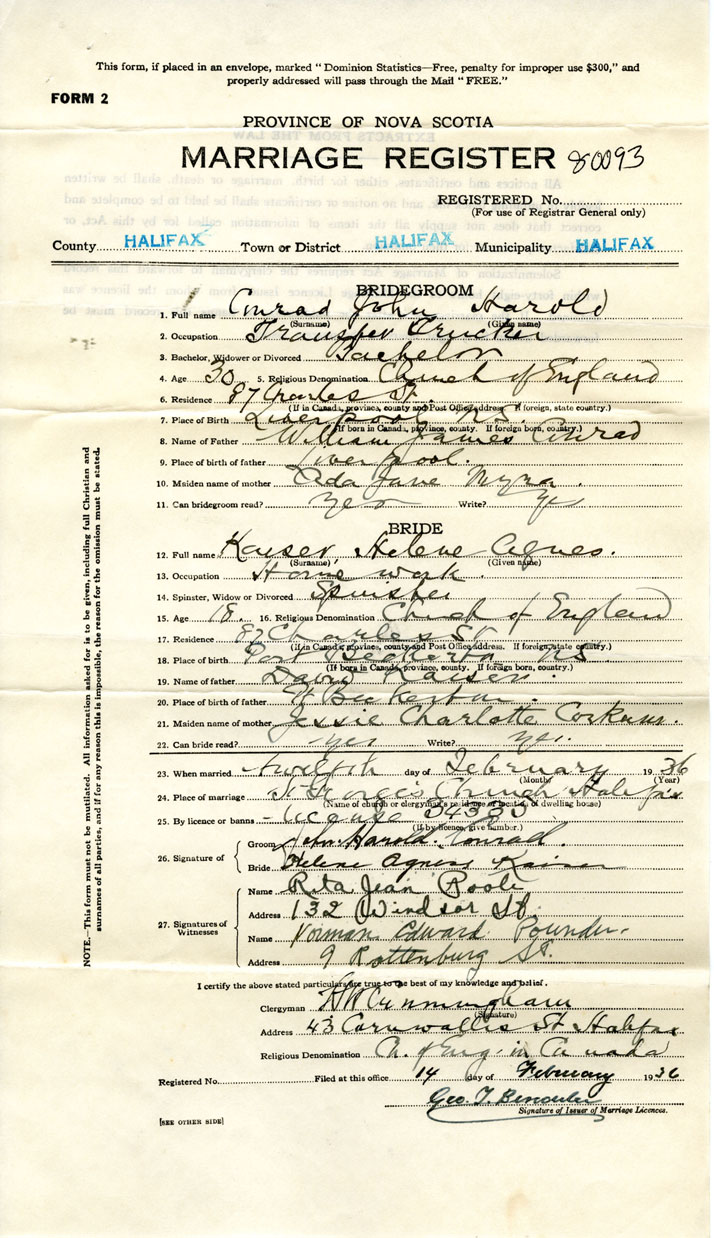 This form, if placed in an envelope, marked "Dominion Statistics—Free, penalty for improper use $300," and
properly addressed will pass through the Mail "FREE."
FORM 2
PROVINCE OF NOVA SCOTIA
MARRIAGE REGISTER 80093
REGISTERED No.
(For use of Registrar General only)
County HALIFAX Town or District HALIFAX Municipality HALIFAX
BRIDEGROOM
1. Full name Conrad John Harold
(Surname) (Given name)
2. Occupation Transfer Trucker
3. Bachelor, Widower or Divorced Bachelor
4. Age 30 5. Religious Denomination Church of England
6. Residence 87 Charles St.
(If in Canada, province, county and Post Office address. If foreign, state country.)
7. Place of Birth Liverpool N.S.
(If born in Canada, province, county. If foreign born, country.)
8. Name of Father William James Conrad
9. Place of birth of father Liverpool.
10. Maiden name of mother Ada Jane Myra.
11. Can bridegroom read? Yes Write? Yes
BRIDE
12. Full name Kaiser Helene Agnes.
(Surname) (Given name)
13. Occupation Home work.
14. Spinster, Widow or Divorced Spinster
15. Age 18. 16. Religious Denomination Church of England
17. Residence 87 Charles St
(If in Canada, province, county and Post Office address. If foreign, state country.)
18. Place of birth Port Beckerton NS
(If born in Canada, province, county. If foreign born, country.)
19. Name of father David Kaiser.
20. Place of birth of father Pt Beckerton.
21. Maiden name of mother Jessie Charlotte Corkum.
22. Can bride read? yes Write? yes.
23. When married twelfth day of February 1936
(Month) (Year)
24. Place of marriage St George's Church Halifax
(Name of church or clergyman's residence or location of dwelling house)
25. By licence or banns License
(If by licence, give number.)
26. Signature of
Groom John Harold Conrad.
Bride Helene Agness Kaiser
27. Signatures of Witnesses
Name Rita Jean Poole
Address 132 Windsor St.
Name Norman Edward Pounder.
Address 9 Rottenburg St.
I certify the above stated particulars are true to the best of my knowledge and belief.
Clergyman H W Cunningham
(Signature)
Address 43 Cornwallis St Halifax
Religious Denomination Ch. of Eng. in Canada
Registered No. Filed at this office 14 day of February 1936
Geo. T.
Signature of Issuer of Marriage Licences.
[SEE OTHER SIDE]
NOTE.—This form must not be mutilated. All information asked for is to be given, including full Christian and
surnames of all parties, and if for any reason this is impossible, the reason for the omission must be stated.